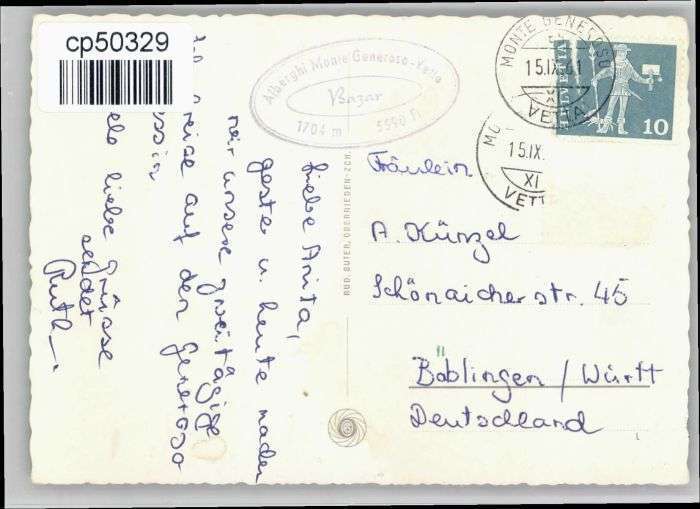 cp50329
Alberghi Monte Generoso-Vetta
Bazar
1704 m 5590 ft
MONTE GENEROSO
15.IX.61
XI
VETTA
HELVETIA
10
MO
15.IX.
XI
VETT
Liebe Anita,
gestern u. heute machen
wir unsere zweitägige
reise auf den Generoso
liebe Grüsse
sendet
Ruth
RUD. SUTER, OBERRIEDEN-ZCH.
Fräulein
A. Künzel
Schönaicher str. 45
Böblingen / Württ
Deutschland